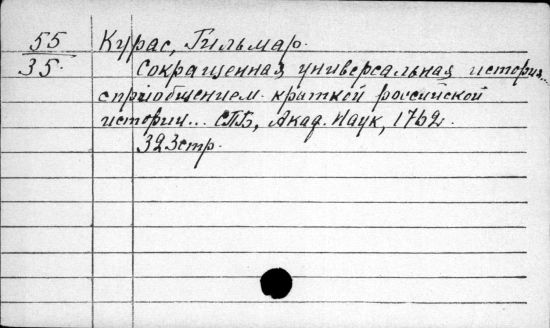 55 Курас, Гильмар.
35. Сокращенная универсальная история...
с приобщением краткой российской
истории... СПБ, Акад. Наук, 1762.
323стр.